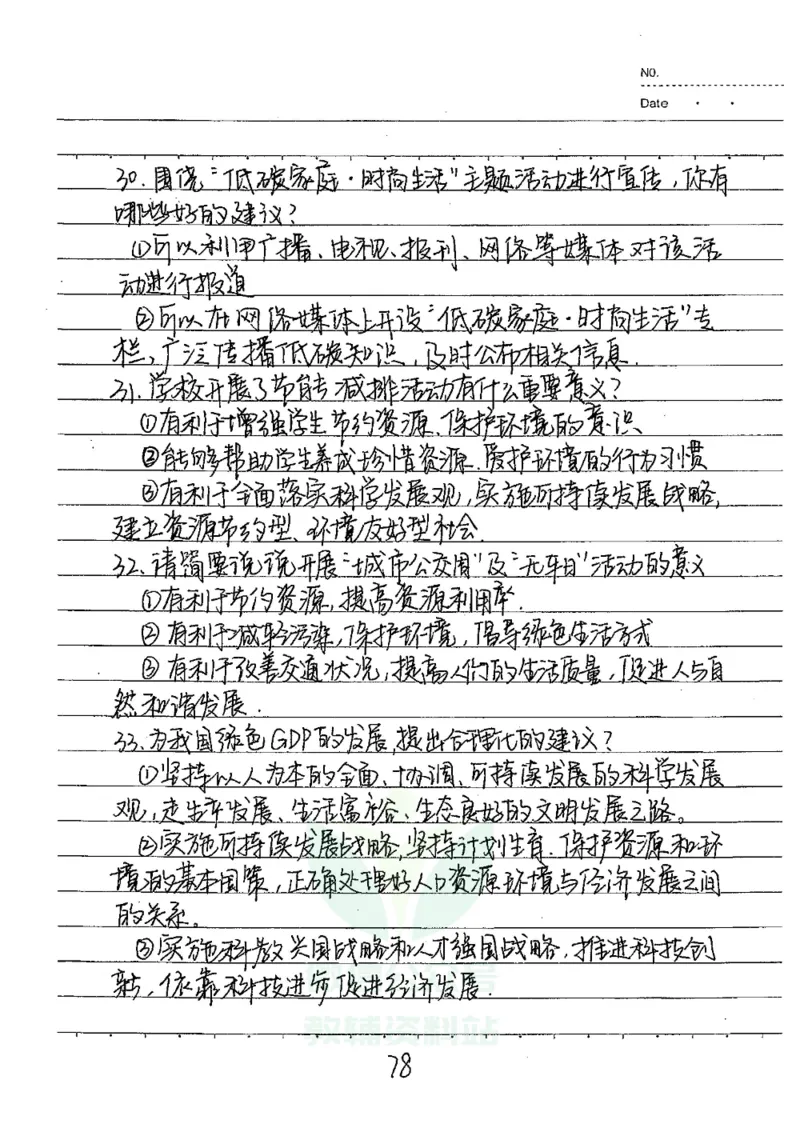 NO.
Date
30.围绕“低碳家庭·时尚生活”主题活动进行宣传,你有
哪些好的建议?
①可以利用广播、电视、报刊、网络等媒体对该活
动进行报道
②可以在网络媒体上开设“低碳家庭·时尚生活”专
栏,广泛传播低碳知识,及时公布相关信息.
31.学校开展了节能减排活动有什么重要意义?
①有利于增强学生节约资源、保护环境的意识
②能够帮助学生养成珍惜资源、爱护环境的行为习惯
③有利于全面落实科学发展观,实施可持续发展战略,
建立资源节约型、环境友好型社会.
32.请简要说说开展“城市公交周”及“无车日”活动的意义
①有利于节约资源,提高资源利用率.
②有利于减轻污染,保护环境,倡导绿色生活方式
③有利于改善交通状况,提高人们的生活质量,促进人与自
然和谐发展.
33.为我国绿色GDP的发展,提出合理化的建议?
①坚持以人为本的全面、协调、可持续发展的科学发展
观,走生产发展、生活富裕、生态良好的文明发展之路。
②实施可持续发展战略,坚持计划生育.保护资源和环
境的基本国策,正确处理好人口资源环境与经济发展之间
的关系。
③实施科教兴国战略和人才强国战略,推进科技创
新,依靠科技进步促进经济发展.
教辅资料站
78